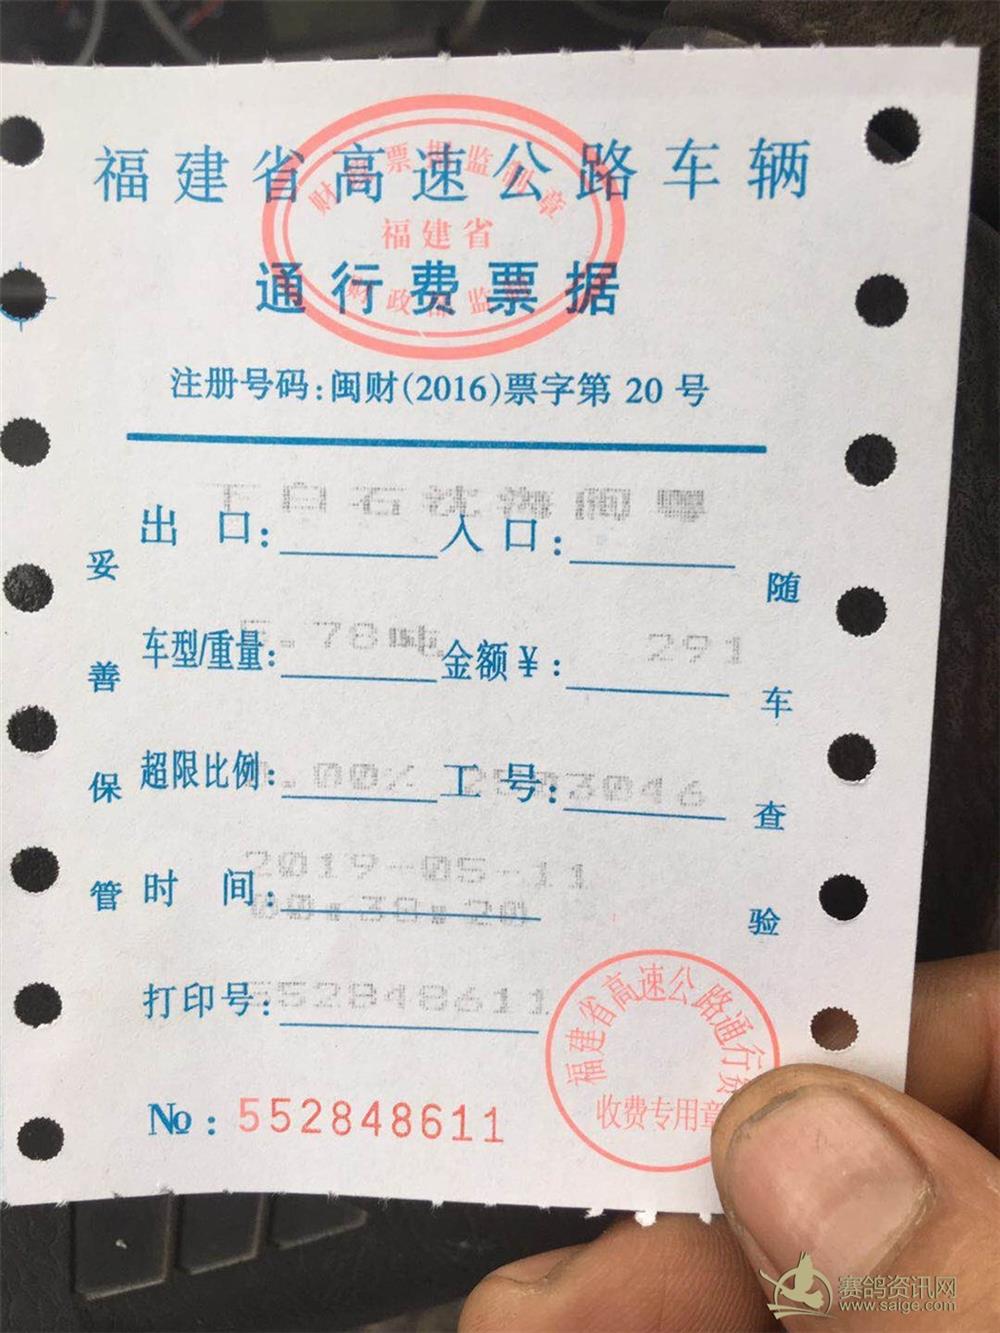 福建省高速公路车辆
财政票据监制章
福建省
通行费票据
注册号码:闽财(2016)票字第 20 号
白石沈海闽粤
出 口: 入 口:
车型/重量: 5.78吨 金额¥: 291
超限比例: 0.00% 工 号: 2503046
时 间: 2019-05-11
00:38:20
打印号: 552848611
№: 552848611
妥善保管
随车查验
福建省高速公路通行费
收费专用章
赛鸽资讯网
www.saige.com